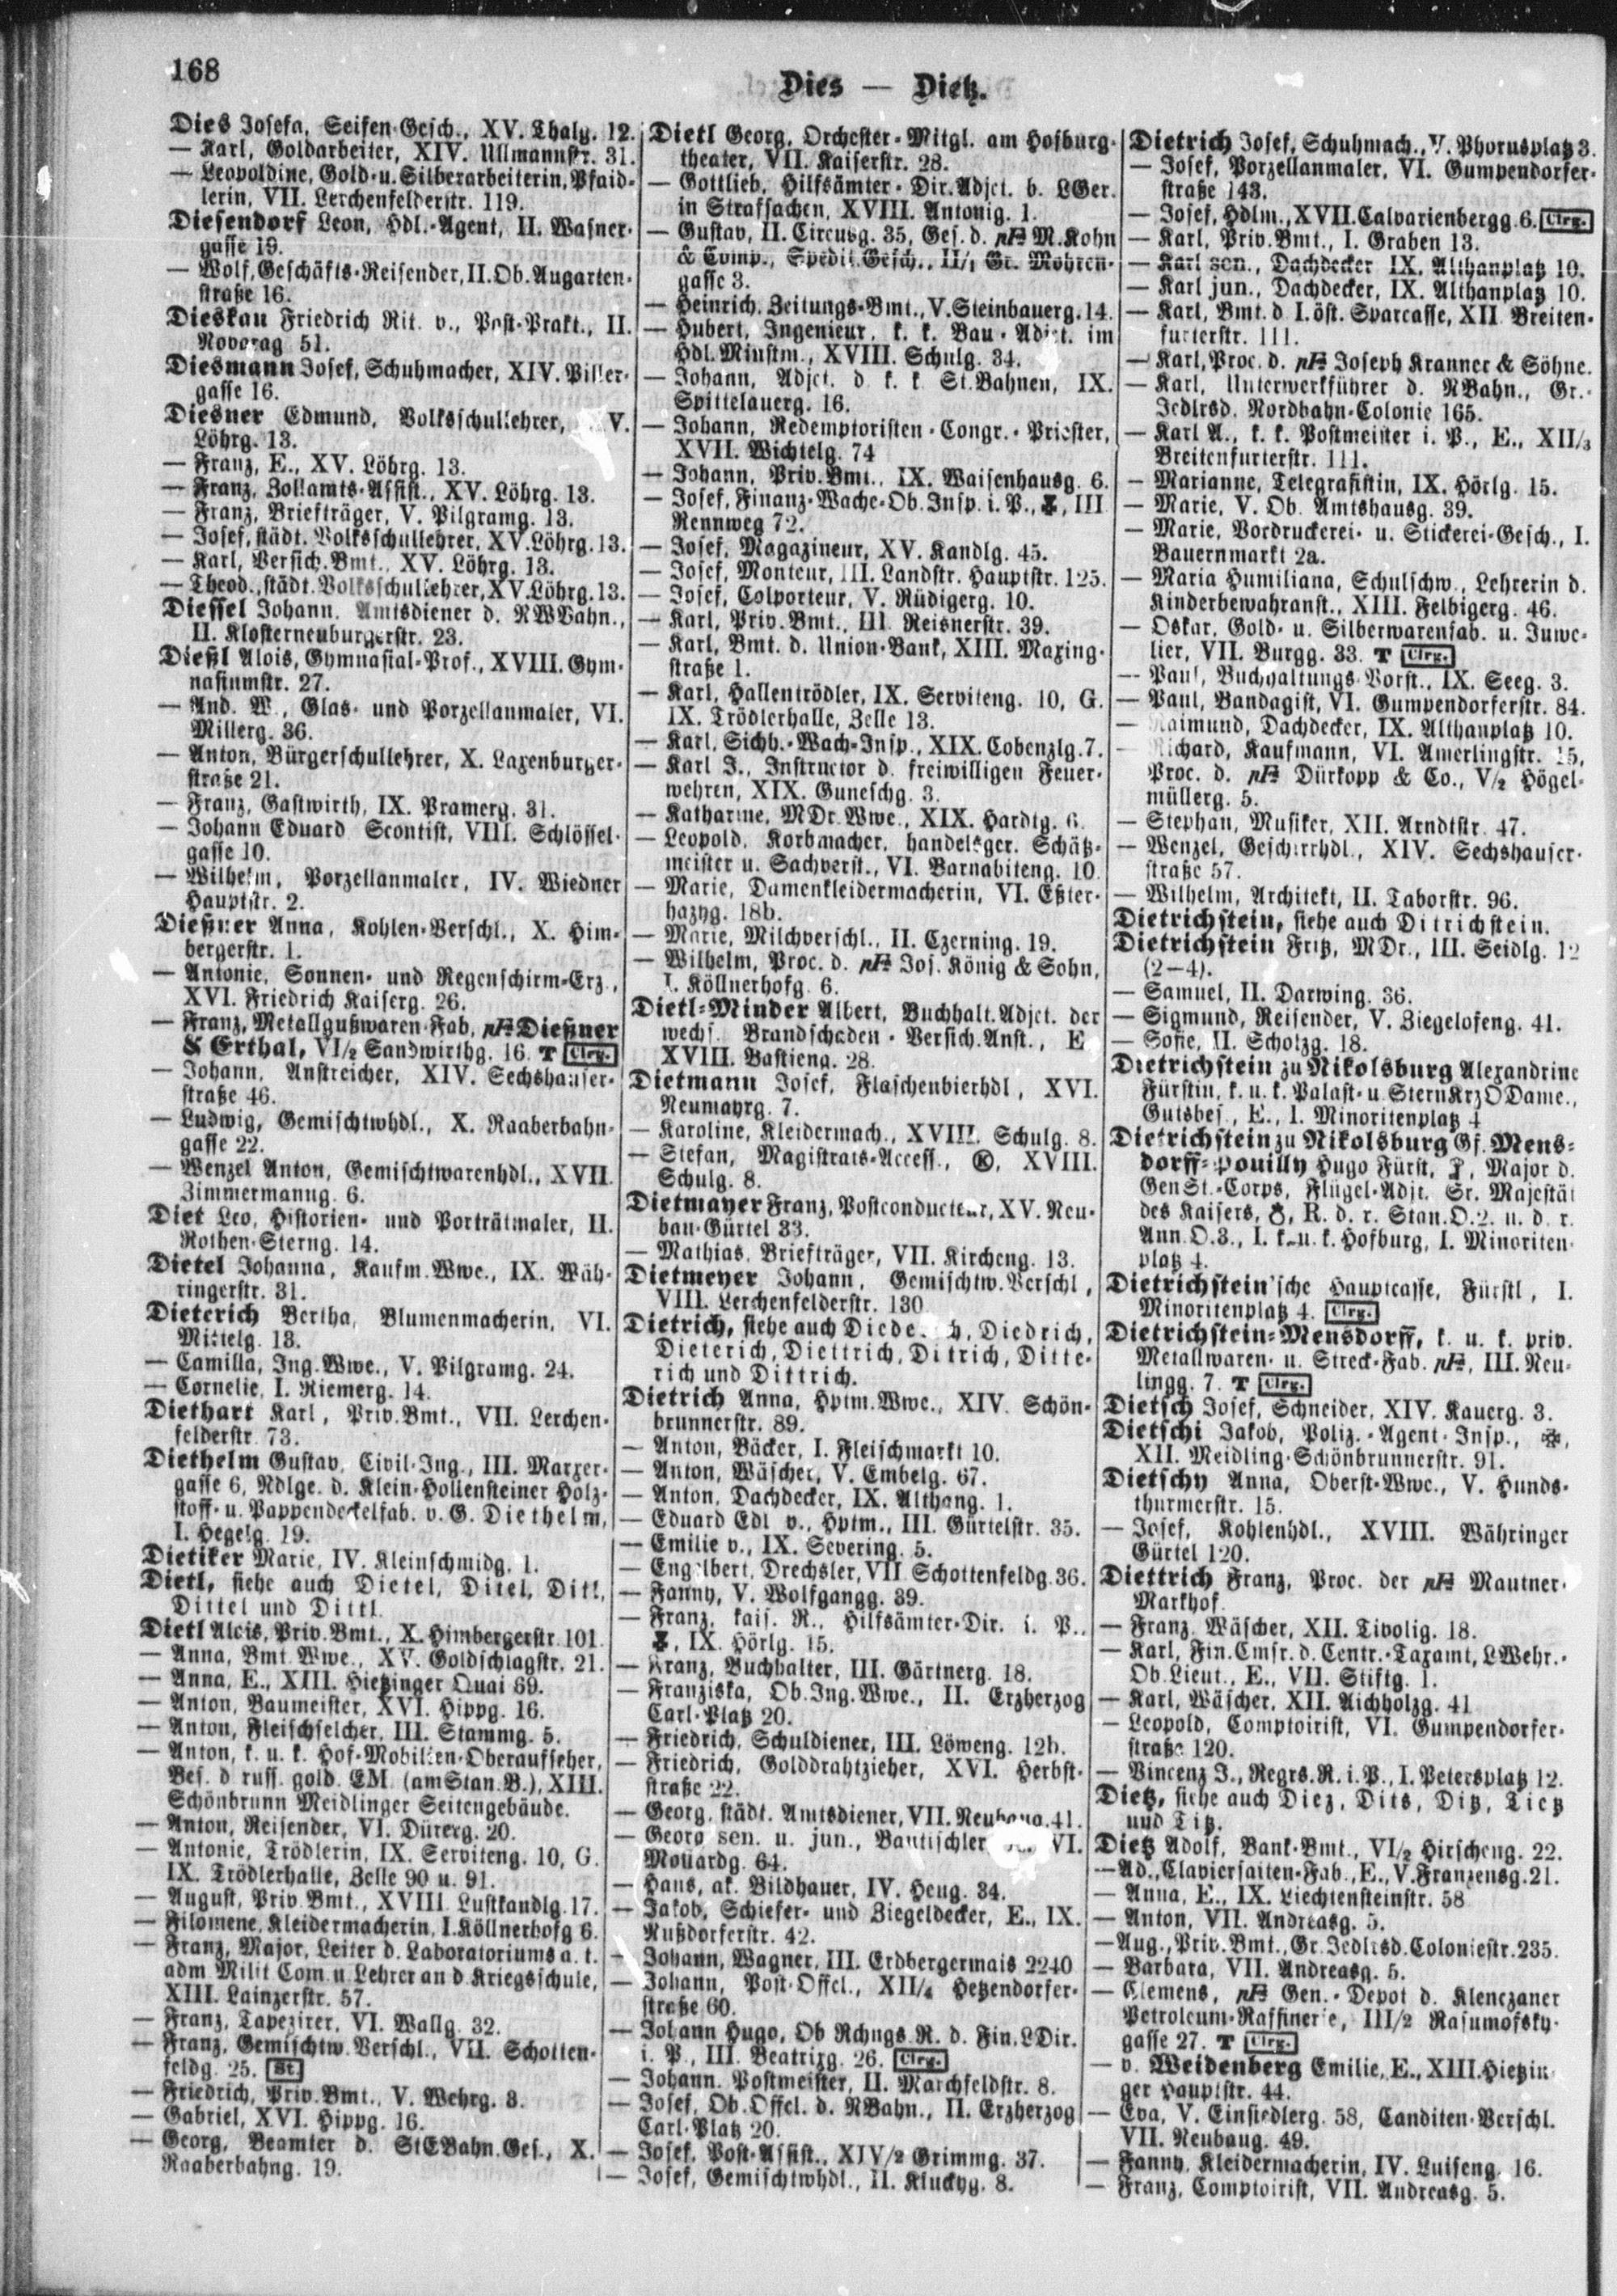 168
Dies — Dietz.
Dies Josefa, Seifen-Gesch., XV. Thalg. 12.
— Karl, Goldarbeiter, XIV. Ullmannstr. 31.
— Leopoldine, Gold- u. Silberarbeiterin, Pfaid-
lerin, VII. Lerchenfelderstr. 119.
Diesendorf Leon, Hdl.-Agent, II. Wafner-
gasse 19.
— Wolf, Geschäfts-Reisender, II. Ob. Augarten-
straße 16.
Dieskau Friedrich Rit. v., Post-Prakt., II.
Novarag 51.
Diesmann Josef, Schuhmacher, XIV. Piller-
gasse 16.
Diesner Edmund, Volksschullehrer, V.
Löhrg. 13.
— Franz, E., XV. Löhrg. 13.
— Franz, Zollamts-Assist., XV. Löhrg. 13.
— Franz, Briefträger, V. Pilgramg. 13.
— Josef, städt. Volksschullehrer, XV. Löhrg. 13.
— Karl, Versich. Bmt., XV. Löhrg. 13.
— Theod., städt. Volksschullehrer, XV. Löhrg. 13.
Diessel Johann, Amtsdiener d. NWBahn.,
II. Klosterneuburgerstr. 23.
Dießl Alois, Gymnasial-Prof., XVIII. Gym-
nasiumstr. 27.
— And. W., Glas- und Porzellanmaler, VI.
Millerg. 36.
— Anton, Bürgerschullehrer, X. Laxenburger-
straße 21.
— Franz, Gastwirth, IX. Pramerg. 31.
— Johann Eduard Scontist, VIII. Schlössel-
gasse 10.
— Wilhelm, Porzellanmaler, IV. Wiedner
Hauptstr. 2.
Dießner Anna, Kohlen-Verschl., X. Him-
bergerstr. 1.
— Antonie, Sonnen- und Regenschirm-Erz.,
XVI. Friedrich Kaiserg. 26.
— Franz, Metallgußwaren-Fab., pF Dießner
& Erthal, VI/2 Sandwirthg. 16. T Clrg.
— Johann, Anstreicher, XIV. Sechshauser-
straße 46.
— Ludwig, Gemischtwhdl., X. Raaberbahn-
gasse 22.
— Wenzel Anton, Gemischtwarenhdl., XVII.
Zimmermanng. 6.
Diet Leo, Historien- und Porträtmaler, II.
Rothen-Sterng. 14.
Dietel Johanna, Kaufm. Wwe., IX. Wäh-
ringerstr. 31.
Dieterich Bertha, Blumenmacherin, VI.
Mittelg. 13.
— Camilla, Ing. Wwe., V. Pilgramg. 24.
— Cornelie, I. Riemerg. 14.
Diethart Karl, Priv. Bmt., VII. Lerchen-
felderstr. 73.
Diethelm Gustav, Civil-Ing., III. Marxer-
gasse 6, Ndlge. d. Klein-Hollensteiner Holz-
stoff- u. Pappendeckelfab. v. G. Diethelm,
I. Hegelg. 19.
Dietiker Marie, IV. Kleinschmidg. 1.
Dietl, siehe auch Dietel, Ditel, Ditl,
Dittel und Dittl.
Dietl Alois, Priv. Bmt., X. Himbergerstr. 101.
— Anna, Bmt. Wwe., XV. Goldschlagstr. 21.
— Anna, E., XIII. Hietzinger Quai 69.
— Anton, Baumeister, XVI. Hippg. 16.
— Anton, Fleischselcher, III. Stammg. 5.
— Anton, k. u. k. Hof-Mobilien-Oberaufseher,
Bes. d russ. gold. EM. (am Stan. B.), XIII.
Schönbrunn Meidlinger Seitengebäude.
— Anton, Reisender, VI. Dürerg. 20.
— Antonie, Trödlerin, IX. Serviteng. 10, G.
IX. Trödlerhalle, Zelle 90 u. 91.
— August, Priv. Bmt., XVIII. Lustkandlg. 17.
— Filomene, Kleidermacherin, I. Köllnerhofg 6.
— Franz, Major, Leiter d. Laboratoriums a. t.
adm. Milit Com u Lehrer an d. Kriegsschule,
XIII. Lainzerstr. 57.
— Franz, Tapezirer, VI. Wallg. 32.
— Franz, Gemischtw. Verschl., VII. Schotten-
feldg. 25. St
— Friedrich, Priv. Bmt., V. Wehrg. 3.
— Gabriel, XVI. Hippg. 16.
— Georg, Beamter d. StEBahn. Ges., X.
Raaberbahng. 19.
Dietl Georg, Orchester-Mitgl. am Hofburg-
theater, VII. Kaiserstr. 28.
— Gottlieb, Hilfsämter-Dir. Adjct. b. LGer.
in Strafsachen, XVIII. Antonig. 1.
— Gustav, II. Circusg. 35, Ges. d. pF M. Kohn
& Comp., Spedit. Gesch., II/1 Gr. Mohren-
gasse 3.
— Heinrich, Zeitungs-Bmt., V. Steinbauerg. 14.
— Hubert, Ingenieur, k. k. Bau-Adjct. im
Hdl. Minstm., XVIII. Schulg. 34.
— Johann, Adjct. d k. k St. Bahnen, IX.
Spittelauerg. 16.
— Johann, Redemptoristen-Congr.-Priester,
XVII. Wichtelg. 74
— Johann, Priv. Bmt., IX. Waisenhausg. 6.
— Josef, Finanz-Wache-Ob. Insp. i. P., III
Rennweg 72.
— Josef, Magazineur, XV. Kandlg. 45.
— Josef, Monteur, III. Landstr. Hauptstr. 125.
— Josef, Colporteur, V. Rüdigerg. 10.
— Karl, Priv. Bmt., III. Reisnerstr. 39.
— Karl, Bmt. d. Union-Bank, XIII. Maxing-
straße 1.
— Karl, Hallentrödler, IX. Serviteng. 10, G.
IX. Trödlerhalle, Zelle 13.
— Karl, Sichh.-Wach-Insp., XIX. Cobenzlg. 7.
— Karl J., Instructor d. freiwilligen Feuer-
wehren, XIX. Guneschg. 3.
— Katharine, MDr. Wwe., XIX. Hardtg. 6.
— Leopold, Korbmacher, handelsger. Schätz-
meister u. Sachverst., VI. Barnabiteng. 10.
— Marie, Damenkleidermacherin, VI. Eßter-
hazyg. 18b.
— Marie, Milchverschl., II. Czerning. 19.
— Wilhelm, Proc. d. pF Jos. König & Sohn,
I. Köllnerhofg. 6.
Dietl-Minder Albert, Buchhalt. Adjct. der
wechs. Brandschaden-Versich. Anst., E
XVIII. Bastieng. 28.
Dietmann Josef, Flaschenbierhdl, XVI.
Neumayrg. 7.
— Karoline, Kleidermach., XVIII. Schulg. 8.
— Stefan, Magistrats-Access., K, XVIII.
Schulg. 8.
Dietmayer Franz, Postconducteur, XV. Neu-
bau-Gürtel 33.
— Mathias, Briefträger, VII. Kircheng. 13.
Dietmeyer Johann, Gemischtw. Verschl,
VIII. Lerchenfelderstr. 130
Dietrich, siehe auch Diedrich,
Dieterich, Diettrich, Ditrich, Ditte-
rich und Dittrich.
Dietrich Anna, Hptm. Wwe., XIV. Schön-
brunnerstr. 89.
— Anton, Bäcker, I. Fleischmarkt 10.
— Anton, Wäscher, V. Embelg. 67.
— Anton, Dachdecker, IX. Althang. 1.
— Eduard Edl v., Hptm., III. Gürtelstr. 35.
— Emilie v., IX. Severing. 5.
— Engelbert, Drechsler, VII Schottenfeldg. 36.
— Fanny, V. Wolfgangg. 39.
— Franz, kais. R., Hilfsämter-Dir. i. P.,
IX. Hörlg. 15.
— Franz, Buchhalter, III. Gärtnerg. 18.
— Franziska, Ob. Ing. Wwe., II. Erzherzog
Carl-Platz 20.
— Friedrich, Schuldiener, III. Löweng. 12b.
— Friedrich, Golddrahtzieher, XVI. Herbst-
straße 22.
— Georg, städt. Amtsdiener, VII. Neubaug. 41.
— Georg sen. u. jun., Bautischler VI.
Mouardg. 64.
— Hans, ak. Bildhauer, IV. Heug. 34.
— Jakob, Schiefer- und Ziegeldecker, E., IX.
Nußdorferstr. 42.
— Johann, Wagner, III. Erdbergermais 2240
— Johann, Post-Offcl., XII/4 Hetzendorfer-
straße 60.
— Johann Hugo, Ob Rchngs. R. d. Fin. LDir.
i. P., III. Beatrixg. 26. Clrg.
— Johann, Postmeister, II. Marchfeldstr. 8.
— Josef, Ob. Offcl. d. NBahn., II. Erzherzog
Carl-Platz 20.
— Josef, Post-Assist., XIV/2 Grimmg. 37.
— Josef, Gemischtwhdl., II. Kluckyg. 8.
Dietrich Josef, Schuhmach., V. Phorusplatz 3.
— Josef, Porzellanmaler, VI. Gumpendorfer-
straße 143.
— Josef, Hdlm., XVII. Calvarienbergg. 6. Clrg.
— Karl, Priv. Bmt., I. Graben 13.
— Karl sen., Dachdecker IX. Althanplatz 10.
— Karl jun., Dachdecker, IX. Althanplatz 10.
— Karl, Bmt. d I. öst. Sparcasse, XII. Breiten-
furterstr. 111.
— Karl, Proc. d. pF Joseph Kranner & Söhne.
— Karl, Unterwerkführer d. NBahn., Gr.-
Jedlrsd. Nordbahn-Colonie 165.
— Karl A., k. k. Postmeister i. P., E., XII/3
Breitenfurterstr. 111.
— Marianne, Telegrafistin, IX. Hörlg. 15.
— Marie, V. Ob. Amtshausg. 39.
— Marie, Vordruckerei- u. Stickerei-Gesch., I.
Bauernmarkt 2a.
— Maria Humiliana, Schulschw., Lehrerin d.
Kinderbewahranst., XIII. Felbigerg. 46.
— Oskar, Gold- u. Silberwarenfab. u. Juwe-
lier, VII. Burgg. 33. T Clrg.
— Paul, Buchhaltungs-Vorst., IX. Seeg. 3.
— Paul, Bandagist, VI. Gumpendorferstr. 84.
— Raimund, Dachdecker, IX. Althanplatz 10.
— Richard, Kaufmann, VI. Amerlingstr. 15,
Proc. d. pF Dürkopp & Co., V/2 Högel-
müllerg. 5.
— Stephan, Musiker, XII. Arndtstr. 47.
— Wenzel, Geschirrhdl., XIV. Sechshauser-
straße 57.
— Wilhelm, Architekt, II. Taborstr. 96.
Dietrichstein, siehe auch Ditrichstein.
Dietrichstein Fritz, MDr., III. Seidlg. 12
(2—4).
— Samuel, II. Darwing. 36.
— Sigmund, Reisender, V. Ziegelofeng. 41.
— Sofie, II. Scholzg. 18.
Dietrichstein zu Nikolsburg Alexandrine
Fürstin, k. u. k. Palast- u. SternKrzODame.,
Gutsbes., E., I. Minoritenplatz 4
Dietrichstein zu Nikolsburg Gf. Mens-
dorff-Pouilly Hugo Fürst, Major d.
GenSt.-Corps, Flügel-Adjt. Sr. Majestät
des Kaisers, R. d. r. Stan. O. 2. u. d. r.
Ann. O. 3., I. k. u. k. Hofburg, I. Minoriten-
platz 4.
Dietrichstein'sche Hauptcasse, Fürstl, I.
Minoritenplatz 4. Clrg.
Dietrichstein-Mensdorff, k. u. k. priv.
Metallwaren- u. Streck-Fab. pF, III. Neu-
lingg. 7. T Clrg.
Dietsch Josef, Schneider, XIV. Kauerg. 3.
Dietschi Jakob, Poliz.-Agent-Insp.,
XII. Meidling-Schönbrunnerstr. 91.
Dietschy Anna, Oberst-Wwe., V. Hunds-
thurmerstr. 15.
— Josef, Kohlenhdl., XVIII. Währinger
Gürtel 120.
Diettrich Franz, Proc. der pF Mautner-
Markhof.
— Franz, Wäscher, XII. Tivolig. 18.
— Karl, Fin. Cmsr. d. Centr.-Taxamt, LWehr.-
Ob. Lieut., E., VII. Stiftg. 1.
— Karl, Wäscher, XII. Aichholzg. 41
— Leopold, Comptoirist, VI. Gumpendorfer-
straße 120.
— Vincenz J., Regrs. R. i. P., I. Petersplatz 12.
Dietz, siehe auch Diez, Dits, Ditz, Tietz
und Titz.
Dietz Adolf, Bank-Bmt., VI/2 Hirscheng. 22.
— Ad., Claviersaiten-Fab., E., V. Franzensg. 21.
— Anna, E., IX. Liechtensteinstr. 58
— Anton, VII. Andreasg. 5.
— Aug., Priv. Bmt., Gr. Jedlrsd. Coloniestr. 235.
— Barbara, VII. Andreasg. 5.
— Clemens, pF Gen.-Depot d. Klenczaner
Petroleum-Raffinerie, III/2 Rasumofsky-
gasse 27. T Clrg.
— v. Weidenberg Emilie, E., XIII. Hietzin-
ger Hauptstr. 44.
— Eva, V. Einsiedlerg. 58, Canditen-Verschl.
VII. Neubaug. 49.
— Fanny, Kleidermacherin, IV. Luiseng. 16.
— Franz, Comptoirist, VII. Andreasg. 5.